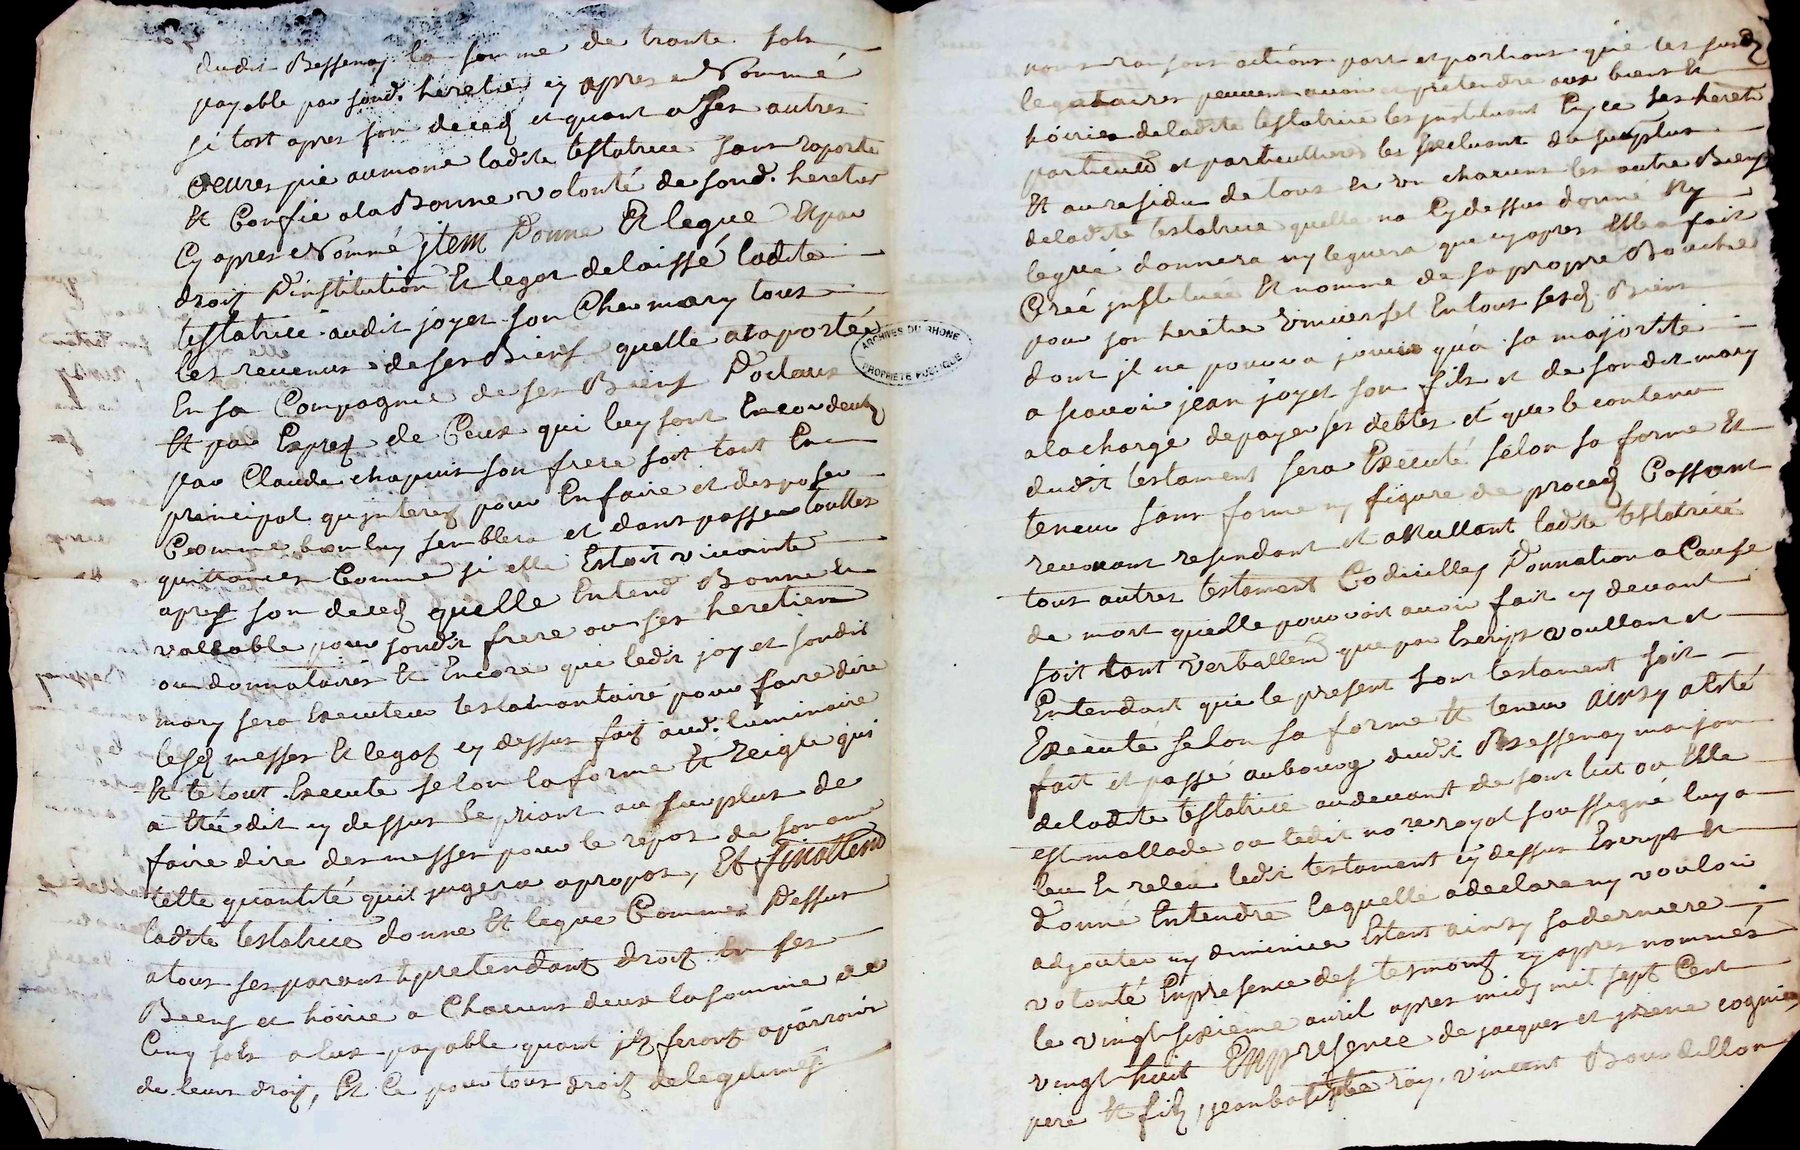 dudit Bessenay la somme de trante sols
payable par sond. heretié cy apres Nommé
si tost apres son deced et quant a ses autres
oeuvres pie aumone ladite testatrice sans raporte
Et Confie a la Bonne volonté de sond. heretier
Cy apres Nommé jtem Donne Et legue Et par
droit D'institution Et legat delaissé ladite
testatrice audit joyet son Cher mary tous
les revenus de ses Biens quelle a aporté
En sa Compagnie de ses Biens Dotaux
Et par Expres de Ceux qui luy sont Encor deub
par Claude chapuis son frere soit tant En
principal qu'interes pour En faire et disposer
Comme bon luy semblera et dans passer touttes
quittances Comme si elle Estoit vivante
apres son deced quelle Entend Bonne Et
vallable pour sondit frere ou ses heretiers
ou donnataires Et Encore que ledit joyet sondit
mary sera Executeur testamantaire pour faire dire
lesd messes Et legat cy dessus fait aud. luminaire
Et le tout Execute selon la forme Et reigle qui
a Eté dit cy dessus le priant au surplus de
faire dire des messes pour le repos de son ame
telle quantité quil jugera a propos, Et finallemt
ladite testatrice donne Et legue Comme Dessus
a tous ses parans Et pretendant droit En ses
Biens et hoirie a Chacuns deux la somme de
Cinq sols a Eux payable quant jls feront aparroir
de leurs droit, Et Ce pour tous droit de legitimes
ARCHIVES DU RHONE
PROPRIÉTÉ PUBLIQUE
noms raisons actions part et portions que les susd
legataires peuvent avoir et pretendre aux biens Et
hoirie de ladite testatrice les instituant En ce ses heretiers
particuliers les Excluant du surplus
Et au residu de tous Et un chacuns les autre Biens
de ladite testatrice quelle na Cy dessus donné Ny
legué donnera ny leguera que cy apres Elle a fait
Creé jnstitue Et nomme de sa propre Bouche
pour son heretie Vniversel En tous sesd. Biens
dont jl ne pourra jouir qu'a sa majorité
a scavoir jean joyet son fils et de sondit mary
a la charge de payer ses debtes et que le contenu
dudit testament sera Executé selon sa forme Et
teneur sans forme ny figure de proced Cassant
revocant resindant et anullant ladite testatrice
tous autres testament Codicilles Donnation a Cause
de mort quelle pourroit avoir fait cy devant
soit tant verballemt que par Escript voullant et
Entendant que le present son testament soit
Execute selon sa forme Et teneur ainsy a Esté
fait et passé au bourg dudit Bessenay maison
de ladite testatrice au devant de sont lict ou Elle
est mallade ou ledit no.re royal soussigné luy a
leu Et releu ledit testament cy dessus Escript Et
donné Entendre laquelle a declare ny vouloir
adjouter ny diminuer Estant ainsy sa derniere
volonté En presence des tesmoins cy apres nommés
le vingt sixieme avril apres midy mil sept Cent
vingt huit En presence de jacques et pierre cognier
pere Et fils, jean batiste roy, vincent Bourdillon